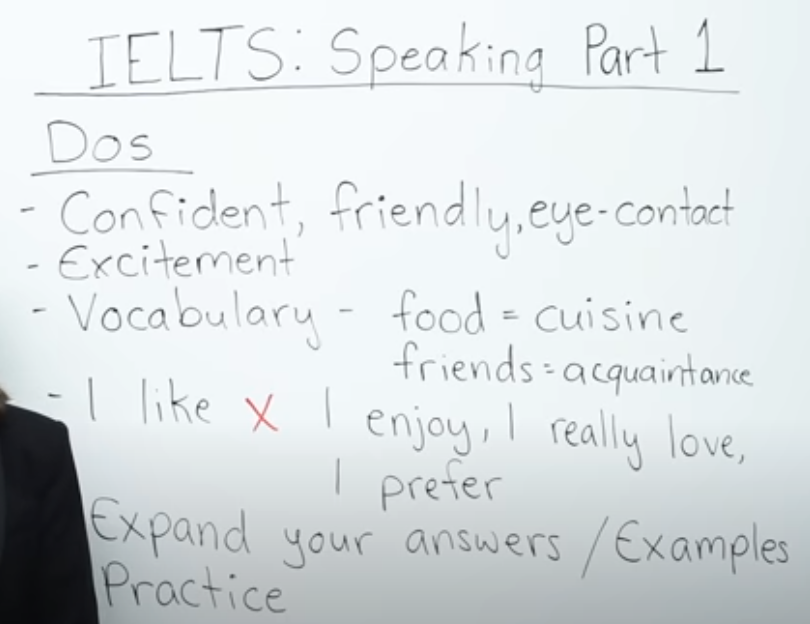 IELTS: Speaking Part 1
Dos
- Confident, friendly, eye-contact
- Excitement
- Vocabulary - food = cuisine
friends = acquaintance
- I like X I enjoy, I really love,
I prefer
Expand your answers / Examples
Practice